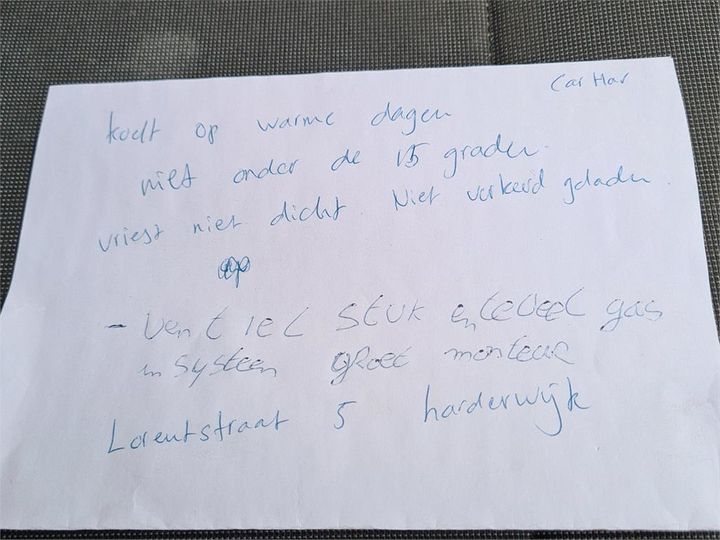 Car Har
koelt op warme dagen
niet onder de 15 graden.
vriest niet dicht. Niet verkeerd geladen.
- Ventiel stuk en teveel gas
in systeem groet monteur
Lorentstraat 5 harderwijk